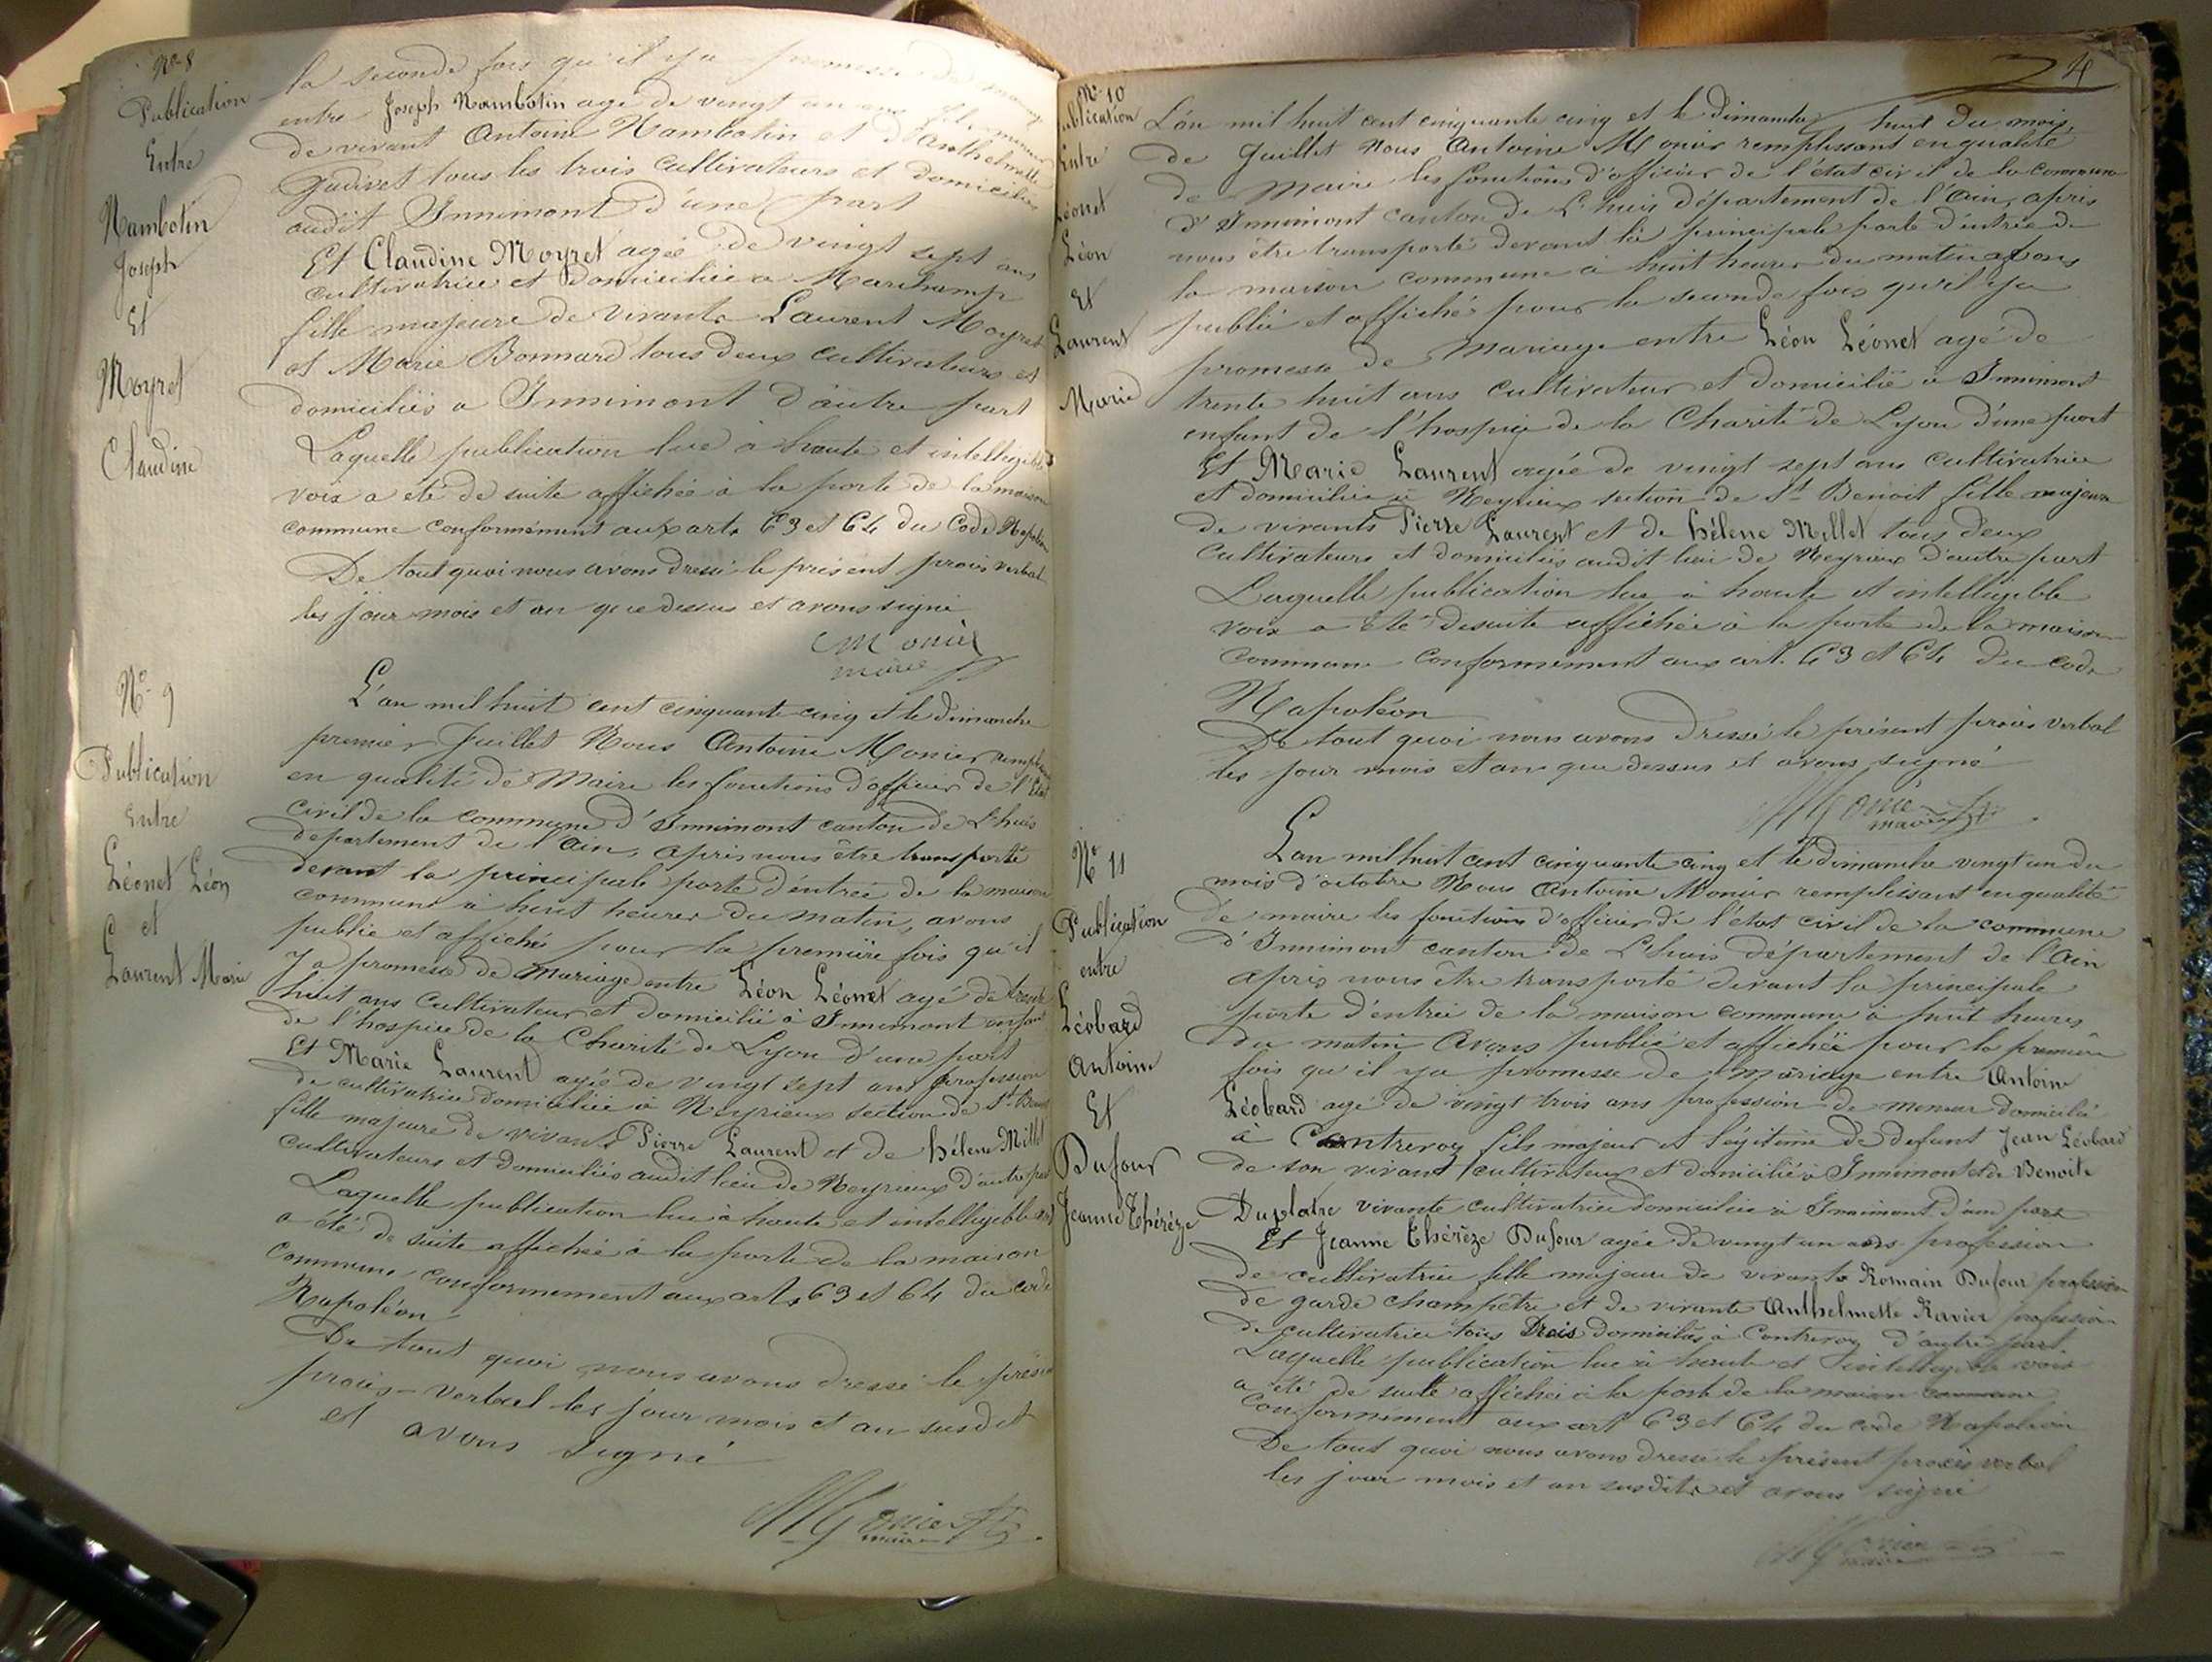 Nº 8
Publication
Entre
Nambotin
Joseph
Et
Moyret
Claudine
la seconde fois qu'il y a promesse de mariage
entre Joseph Nambotin agé de vingt un ans fils mineur
de vivant Antoine Nambotin et d'Anthelmette
Gudivet tous les trois cultivateurs et domiciliés
audit Innimont d'une part
Et Claudine Moyret agée de vingt sept ans
cultivatrice et domiciliée a Marchamp
fille majeure de vivants Laurent Moyret
et Marie Bonnard tous deux cultivateurs et
domiciliés a Innimont d'autre part
Laquelle publication lue à haute et intelligible
voix a été de suite affichée à la porte de la maison
commune conformément aux arts 63 et 64 du Code Napoléon
De tout quoi nous avons dressé le présent procès verbal
les jour mois et an que dessus et avons signé
Monier
maire
Nº 9
Publication
Entre
Léonet Léon
et
Laurent Marie
L'an mil huit cent cinquante cinq et le dimanche
premier Juillet Nous Antoine Monier remplissant
en qualité de Maire les fonctions d'officier de l'Etat
civil de la commune d'Innimont canton de L'huis
département de l'Ain, après nous être transporté
devant la principale porte d'entrée de la maison
commune à huit heures du matin, avons
publié et affiché pour la première fois qu'il
y a promesse de mariage entre Léon Léonet agé de trente
huit ans cultivateur et domicilié à Innimont enfant
de l'hospice de la Charité de Lyon d'une part
Et Marie Laurent agée de vingt sept ans profession
de cultivatrice domiciliée à Neyrieux section de St Benoit
fille majeure de vivants Pierre Laurent et de hélène Millet
cultivateurs et domiciliés audit lieu de Neyrieux d'autre part
Laquelle publication lue à haute et intelligible voix
a été de suite affichée à la porte de la maison
commune conformement aux arts 63 et 64 du code
Napoléon
De tout quoi nous avons dressé le présent
procès-verbal les jour mois et an susdit
et avons signé
Monier
maire
24
Nº 10
Publication
Entre
Léonet
Léon
Et
Laurent
Marie
L'an mil huit cent cinquante cinq et le dimanche huit du mois
de Juillet Nous Antoine Monier remplissant en qualité
de Maire les fonctions d'officier de l'état civil de la commune
d'Innimont canton de L'huis département de l'Ain, après
nous être transporté devant la principale porte d'entrée de
la maison commune à huit heures du matin avons
publié et affiché pour la seconde fois qu'il y a
promesse de mariage entre Léon Léonet agé de
trente huit ans cultivateur et domicilié à Innimont
enfant de l'hospice de la Charité de Lyon d'une part
Et Marie Laurent agée de vingt sept ans cultivatrice
et domiciliée à Neyrieux section de St Benoit fille majeure
de vivants Pierre Laurent et de hélène Millet tous deux
cultivateurs et domiciliés audit lieu de Neyrieux d'autre part
Laquelle publication lue à haute et intelligible
voix a été desuite affichée à la porte de la maison
commune conformément aux art. 63 et 64 du code
Napoléon
De tout quoi nous avons dressé le présent procès verbal
les jour mois et an que dessus et avons signé
Monier
maire
Nº 11
Publication
entre
Léobard
Antoine
Et
Dufour
Jeanne Thérèze
L'an mil huit cent cinquante cinq et le dimanche vingt un du
mois d'octobre Nous Antoine Monier remplissant en qualité
de maire les fonctions d'officier de l'état civil de la commune
d'Innimont canton de L'huis département de l'Ain
après nous être transporté devant la principale
porte d'entrée de la maison commune à huit heures
du matin Avons publié et affichée pour la première
fois qu'il y a promesse de mariage entre Antoine
Léobard agé de vingt trois ans profession de mineur domicilié
à Contrevoz fils majeur et légitime de defunt Jean Léobard
de son vivant cultivateur et domicilié à Innimont et de Benoite
Duplatre vivante cultivatrice domiciliée à Innimont d'une part
Et Jeanne Thérèze Dufour agée de vingt un ans profession
de cultivatrice fille majeure de vivants Romain Dufour profession
de garde champêtre et de vivante Anthelmette Ravier profession
de cultivatrice tous trois domiciliés à Contrevoz d'autre part
Laquelle publication lue à haute et intelligible voix
a été de suite affichée à la porte de la maison commune
Conformément aux art 63 et 64 du code Napoléon
De tout quoi nous avons dressé le présent procès verbal
les jour mois et an susdits et avons signé
Monier
maire